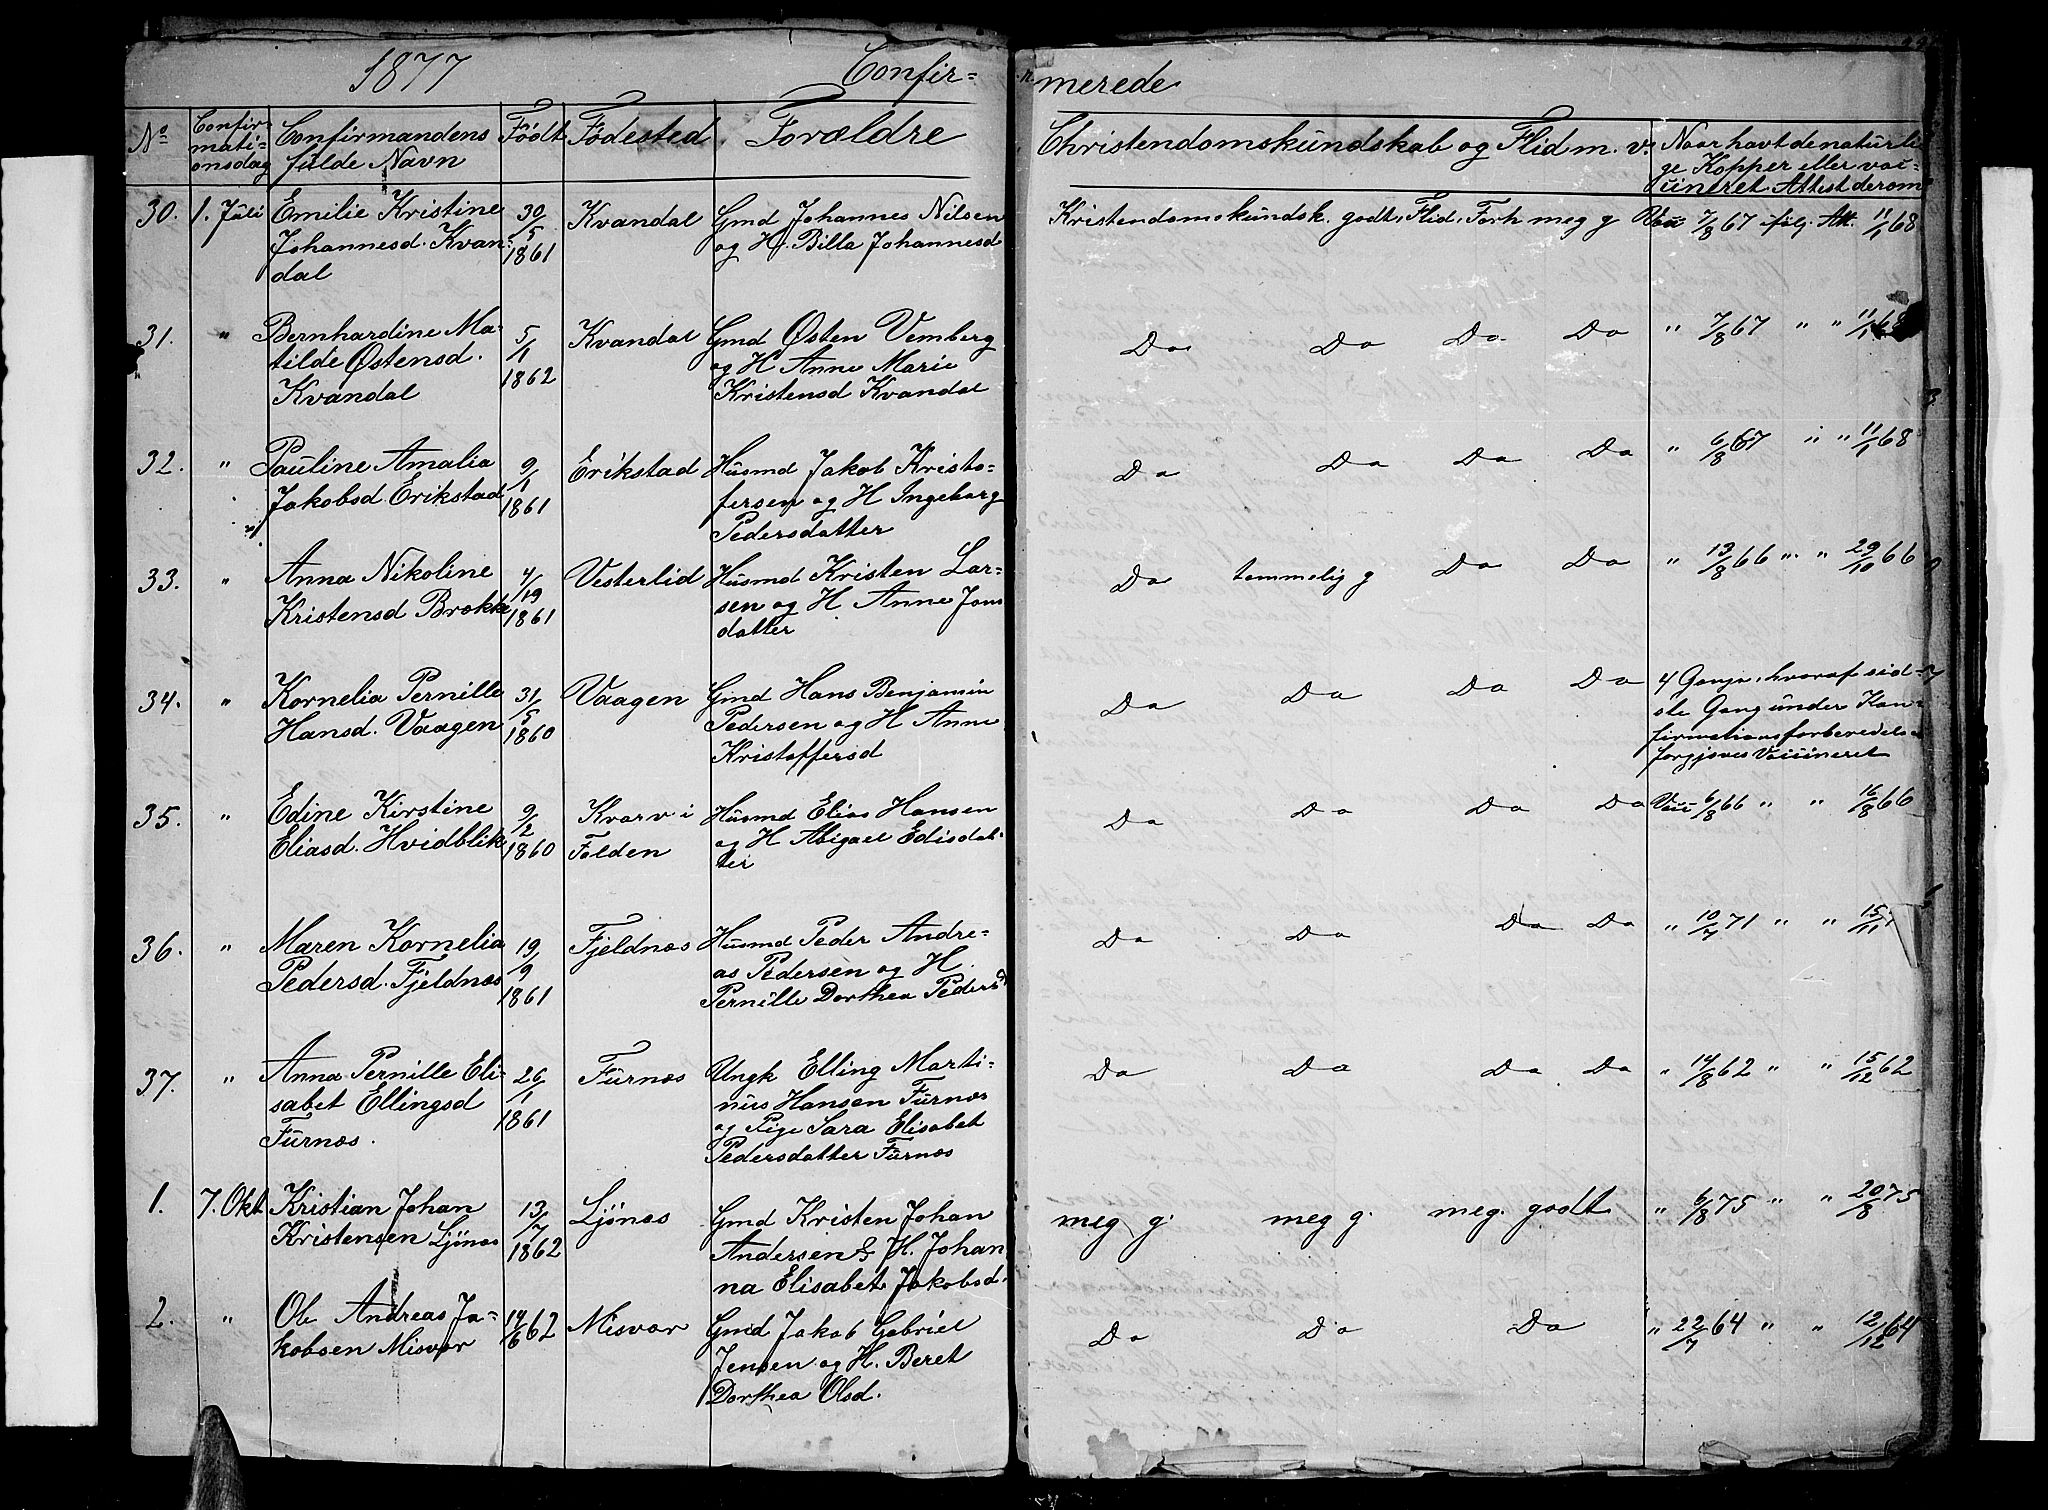 1877 Confir=
merede
No
Confir=
mati=
onsdag
Confirmandens
fulde Navn
Födt
Födested
Forældre
Christendomskundskab og Flid m. v.
Naar havt de naturli
ge Kopper eller vac=
cineret. Attest derom
30. 1. Juli Emilie Kristine 30/5 1861 Kvandal Gmd Johannes Nilsen
Johannesd. Kvan= og H. Billa Johannesd
dal
Kristendomskundsk. godt, Flid, Forh meg g Vac 7/8 67 ifølg. Att. 11/1 68
31. " Bernhardine Ma= 5/1 1862 Kvandal Gmd Østen Vemberg
tilde Østensd. og H Anne Marie
Kvandal Kristensd Kvandal
Do Do Do Do " 7/8 67 " " 11/1 68
32. " Pauline Amalia 9/1 1861 Erikstad Husmd Jakob Kristo=
Jakobsd Erikstad fersen og H Ingeborg
Pedersdatter
Do Do Do Do " 6/8 67 " " 11/1 68
33. " Anna Nikoline 4/19 1861 Vesterlid Husmd Kristen Lar=
Kristensd Brække sen og H Anne Jons
datter
Do temmelig g Do Do " 13/8 66 " " 29/10 66
34. " Kornelia Pernille 31/5 1860 Vaagen Gmd Hans Benjamin
Hansd. Vaagen Pedersen og H Anne
Kristoffersd
Do Do Do Do 4 Gange, hvoraf sid=
ste Gang under Kon=
firmationsforberedelse
forgjæves Vaccineret
35. " Edine Kirstine 9/2 1860 Kvarv i Husmd Elias Hansen
Eliasd. Hvidblik Folden og H Abigael Edisdat
ter
Do Do Do Do Vac 6/8 66 " " 16/8 66
36. " Maren Kornelia 19/9 1861 Fjeldnæs Husmd Peder Andre=
Pedersd. Fjeldnæs as Pedersen og H.
Pernille Dorthea Pedersd
Do Do Do Do " 10/7 71 " " 15/11
37. " Anna Pernille Eli= 26/1 1861 Furnæs Ungk Elling Marti=
sabet Ellingsd nius Hansen Furnæs
Furnæs. og Pige Sara Elisabet
Pedersdatter Furnæs
Do Do Do Do " 14/8 62 " " 15/12 62
1. 7. Okt Kristian Johan 13/7 1862 Ljönæs Gmd Kristen Johan
Kristensen Ljönæs Andersen & H. Johan
na Elisabet Jakobsd.
meg g. meg g. meg. godt " 6/8 75 " " 20/8 75
2. " Ole Andreas Ja= 14/6 62 Misvær Gmd Jakob Gabriel
kobsen Misvær Jensen og H. Beret
Dorthea Olsd.
Do Do Do " 22/7 64 " " 12/12 64